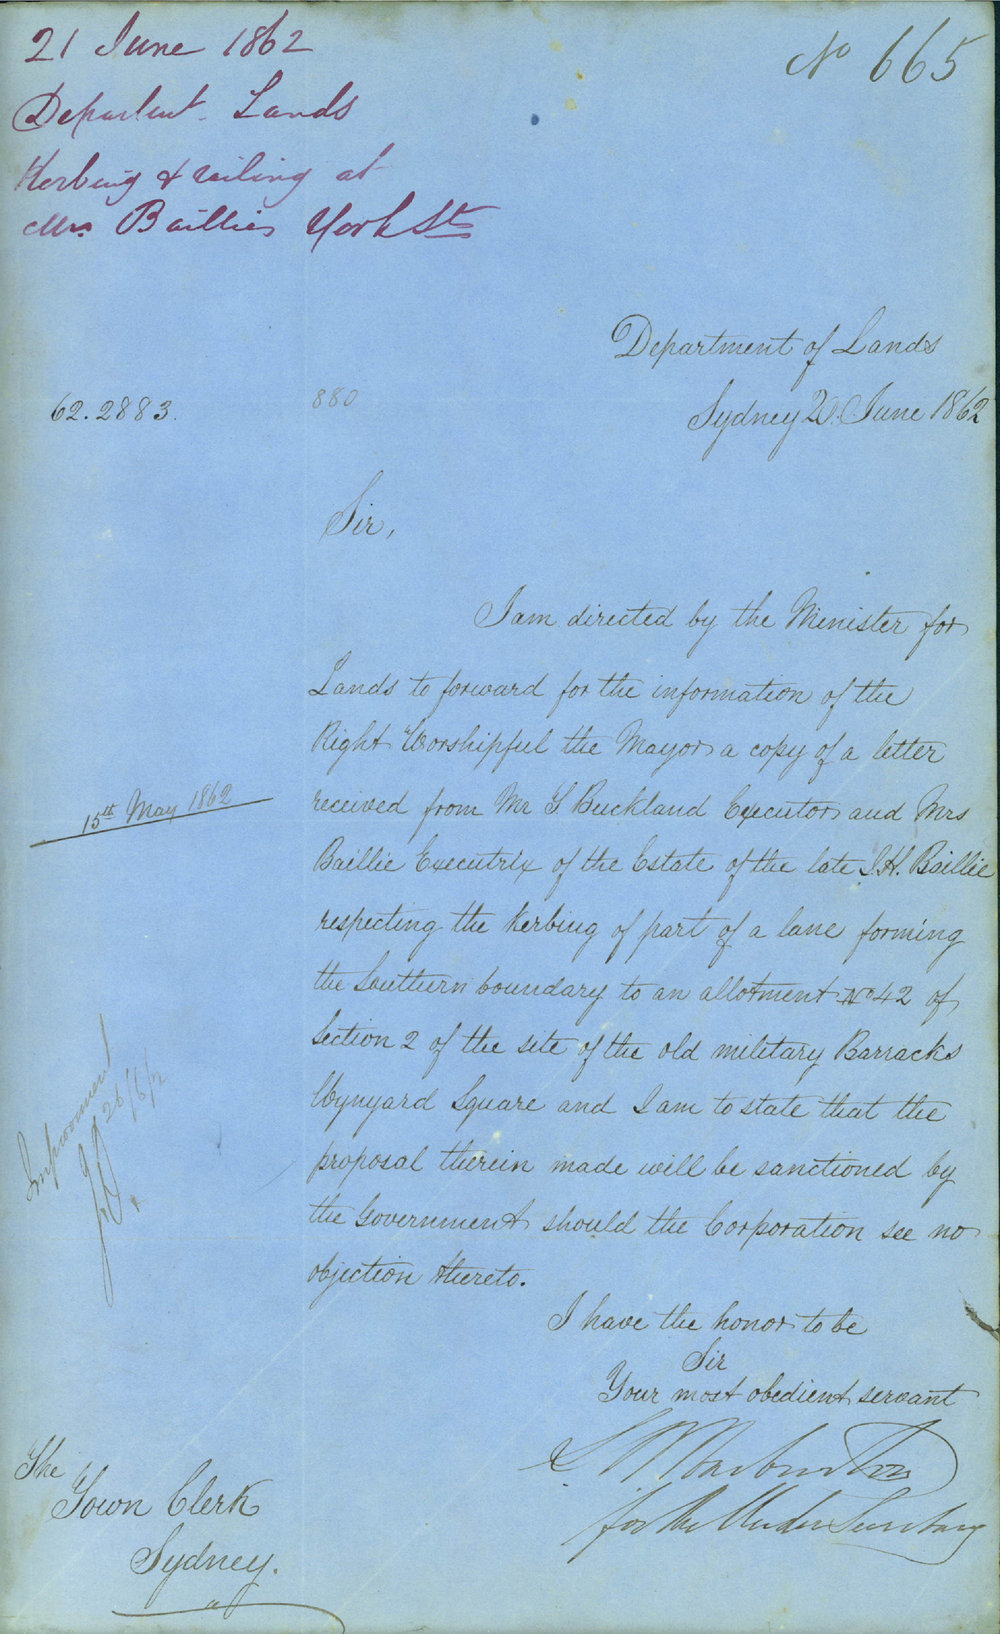 21 June 1862
No 665
Department Lands
Kerbing & railing at
Mrs Baillies York St
Department of Lands
62.2883.
880
Sydney 20 June 1862
Sir,
I am directed by the Minister for
Lands to forward for the information of the
Right Worshipful the Mayor a copy of a letter
15th May 1862
received from Mr T Buckland Executor and Mrs
Baillie Executrix of the Estate of the late J.H. Baillie
respecting the Kerbing of part of a lane forming
the Southern boundary to an allotment No 42 of
Section 2 of the site of the old military Barracks
Wynyard Square and I am to state that the
proposal therein made will be sanctioned by
the Government should the Corporation see no
objection thereto.
Improvement
26/6/2
I have the honor to be
Sir
Your most obedient servant
for the Under Secretary
The
Town Clerk
Sydney.